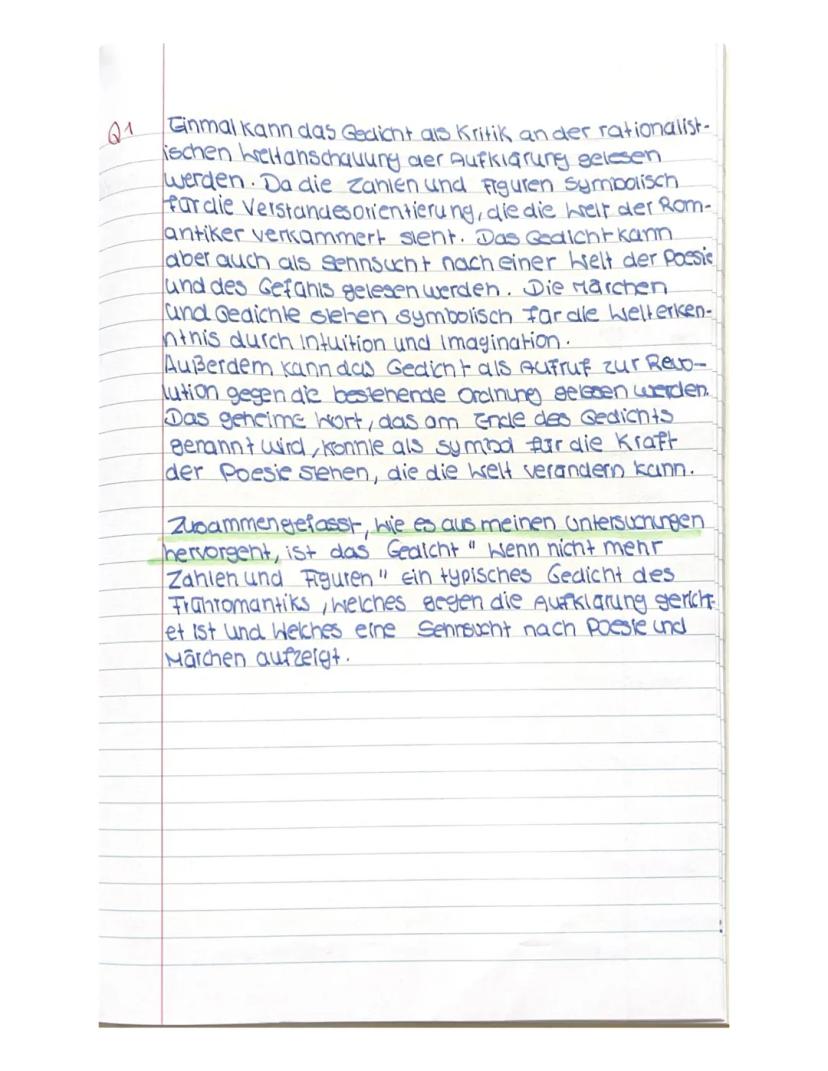 Q1
Einmal kann das Gedicht als Kritik an der rationalist-
ischen Weltanschauung der Aufklärung gelesen
werden. Da die Zahlen und Figuren Symbolisch
für die Verstandesorientierung, die die Welt der Rom-
antiker verkümmert sieht. Das Gedicht kann
aber auch als Sehnsucht nach einer Welt der Poesie
und des Gefühls gelesen werden. Die Märchen
und Gedichte stehen symbolisch für die Welterken-
ntnis durch Intuition und Imagination.
Außerdem kann das Gedicht als Aufruf zur Revo-
lution gegen die bestehende Ordnung gelesen werden.
Das geheime Wort, das am Ende des Gedichts
genannt wird, könnte als symbol für die Kraft
der Poesie stehen, die die Welt verändern kann.
Zusammengefasst, wie es aus meinen Untersuchungen
hervorgeht, ist das Gedicht " Wenn nicht mehr
Zahlen und Figuren" ein typisches Gedicht des
Frühromantiks, welches gegen die Aufklärung gericht-
et ist und welches eine Sehnsucht nach Poesie und
Märchen aufzeigt.